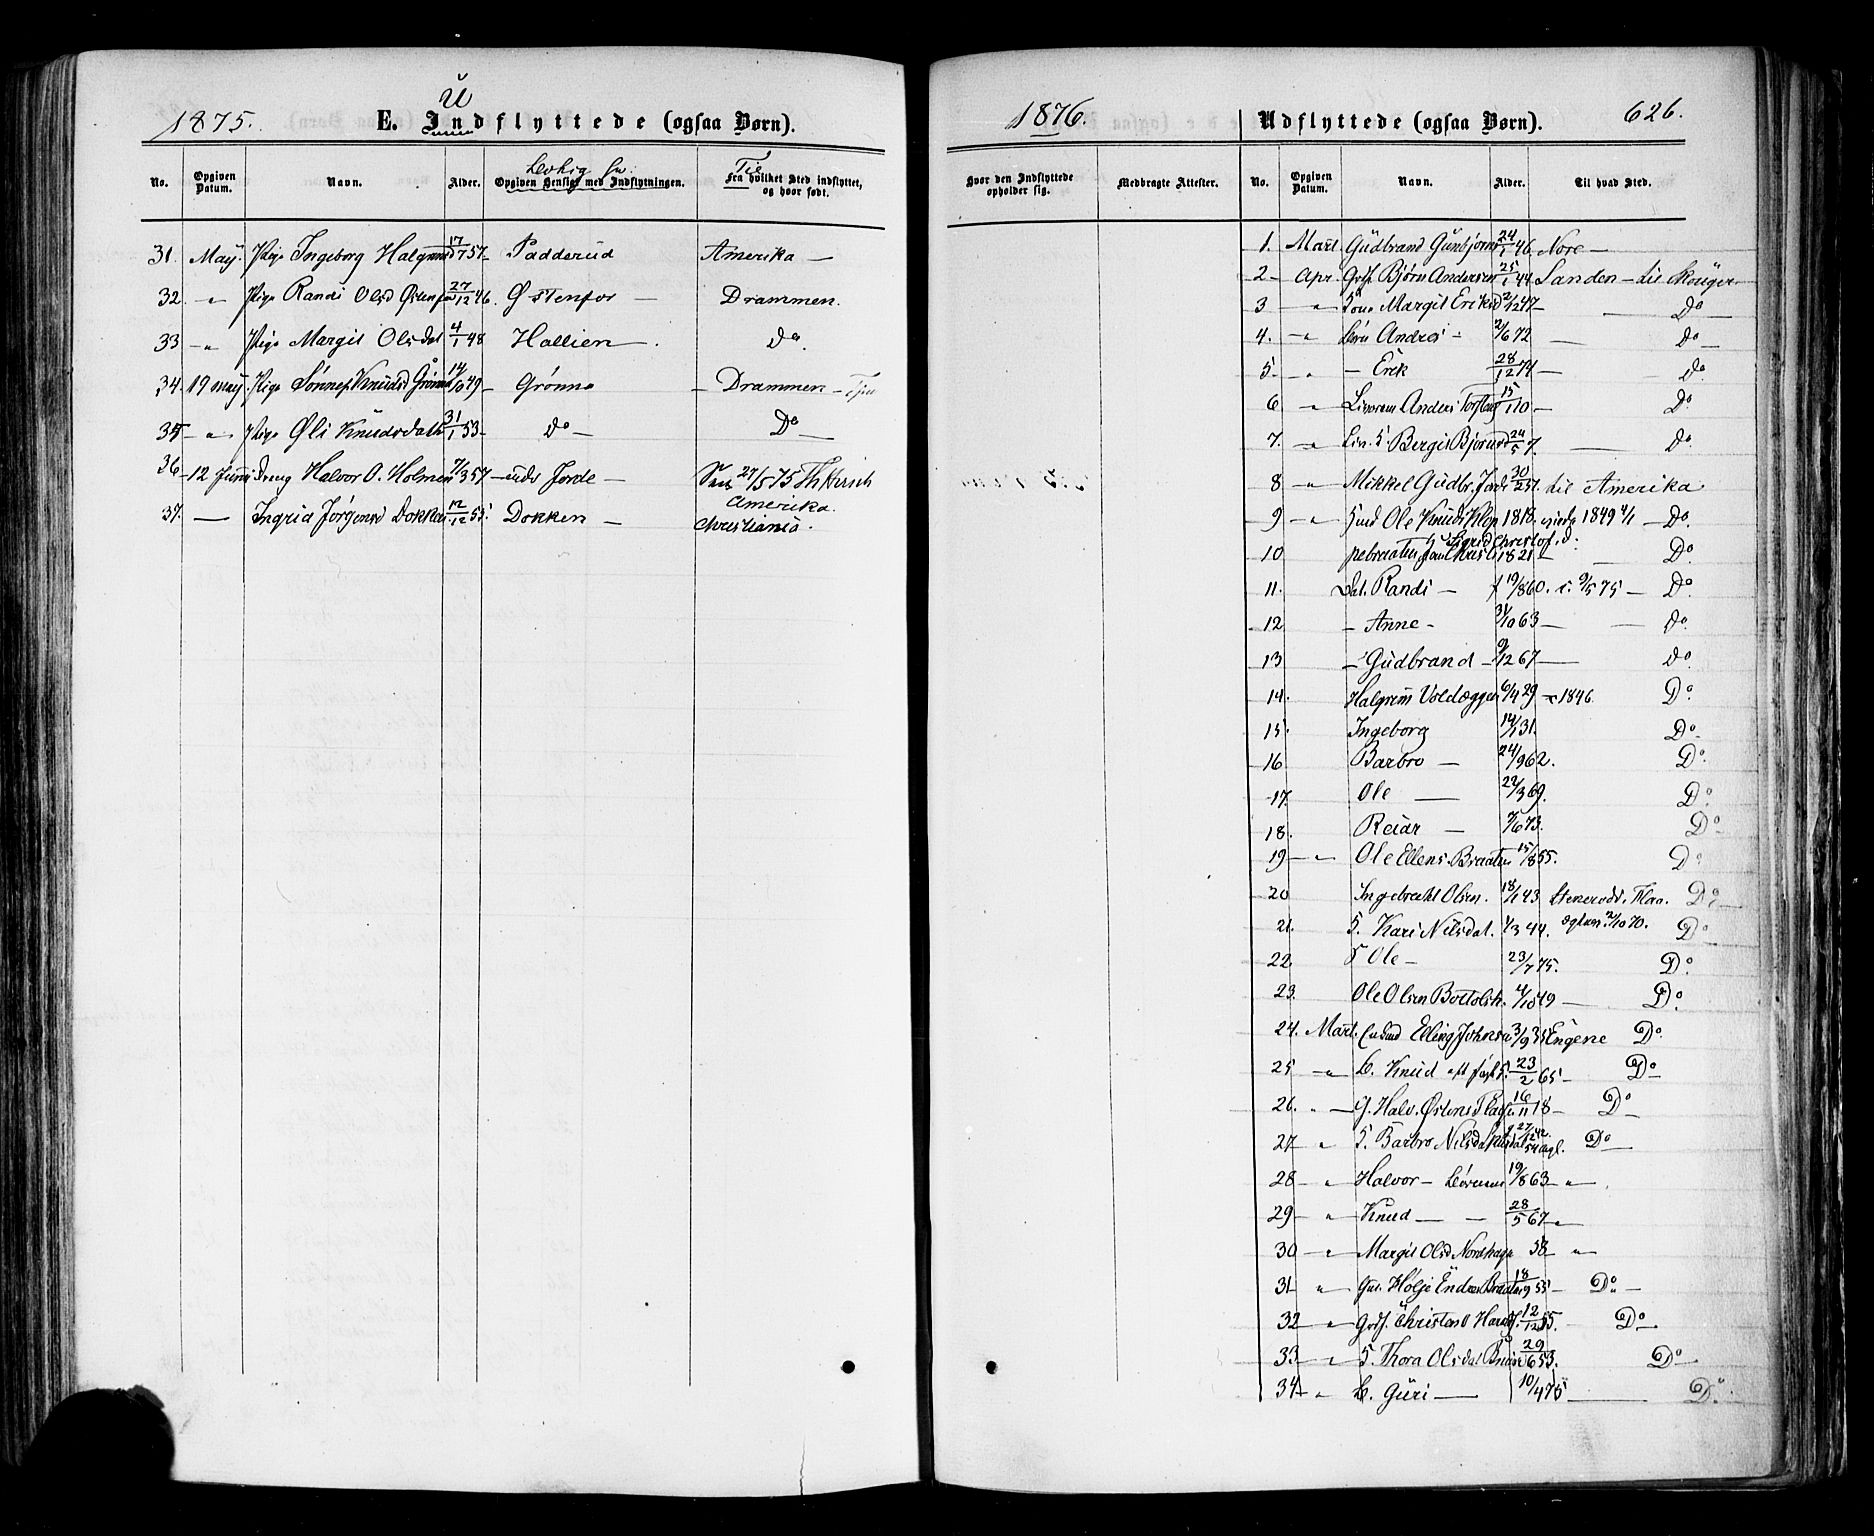 1875.
U
E. Indflyttede (ogsaa Børn).
No.
Opgiven Datum.
Navn.
Alder.
Opgiven Hensigt med Indflytningen.
Til
Fra hvilket Sted indflyttet, og hvor født.
31. Maij. Pige Ingeborg Halgrimsd 17/7 57 - Padderud Amerika -
32. " Pige Randi Olsd Østenfor 27/12 46. Østenfor - Drammen.
33 " Pige Margit Olsdat 4/1 48 Hallien - Do.
34. 19 maij Pige Sønnef Knudsd Grønna 14/10 49 - Grønna - Drammen -
35 " Pige Øli Knudsdatt 31/1 53 - Do - Do -
36 - 12 Junii Dreng Halvor O. Holmen 7/3 57 - Jorde - 27/5 75 Th Hirsch
Amerika.
37. - Ingrid Jørgensd Dokken 12/12 55. Dokken - Christiania.
1876.
Udflyttede (ogsaa Børn).
626.
Hvor den Indflyttede opholder sig.
Medbragte Attester.
No.
Opgiven Datum.
Navn.
Alder.
Til hvad Sted.
1. Mart. Gudbrand Gunbjørns 24/1 46 Nore -
2 - Apr. Bjørn Andersen 25/1 44 Sanden - til Skouger
3 " Margit Eriksd 2/12 47 - Do
4. " Børn Andres - 2/6 72 - Do -
5. " - Erik 28/12 74 - Do.
6 " Anders Torstens 15/1 10 - Do.
7. " Bergit Bjørnsd 24/5 7. - Do.
8 " Mikkel Gudbr. Jorde 30/2 51. til Amerika
9 - " Ole Knuds Klop 1818. 1849 4/1 - Do.
Sigrid Christof. d:
10 1821 - Do.
11. Dat. Randi - f 19/8 60. c. 9/5 75 - Do.
12 - Anne - 31/10 63 - - Do.
13 - Gudbrand - 9/12 67 - Do.
14. Halgrim Voldeggen 6/4 29 - 1846. Do.
15. Ingeborg 14/1 31. Do.
16 Barbro - 24/9 62. Do.
17 Ole - 22/3 69. Do.
18. Reiar - 7/6 73. Do.
19 - " Ole Ellens. Braaten 15/8 55. Do
20 Ingebrecht Olsen. 18/1 43 Stenerods. Flaa. Do. -
21. Kari Nilsdat. 1/3 44. 2/10 70. Do.
22 Ole - 23/7 75. Do.
23. Ole Olsen Bortolsh. 4/10 49 - Do.
24. Mart. Elling Johnsen 3/9 35 Engene Do.
25 - " B. Knud 23/2 65 - Do -
26. " - G. Halv. Østens Flag 16/11 18 - Do -
27 " Barbro Nilsdat 27/12 42. Do -
28 - " - Halvor - Børnene 19/8 63 - " .
29 - " - Knud - - 28/5 67 "
30 - " Margit Olsd Nordhagn 58 "
31 " Holje Endres Braaten 18/9 55 - Do. -
32 - " Christen O Haraf. 12/12 55. - Do -
33 - " Thora Olsdat 29/6 53. - Do -
34 - " B. Guri - 10/4 75 - Do.